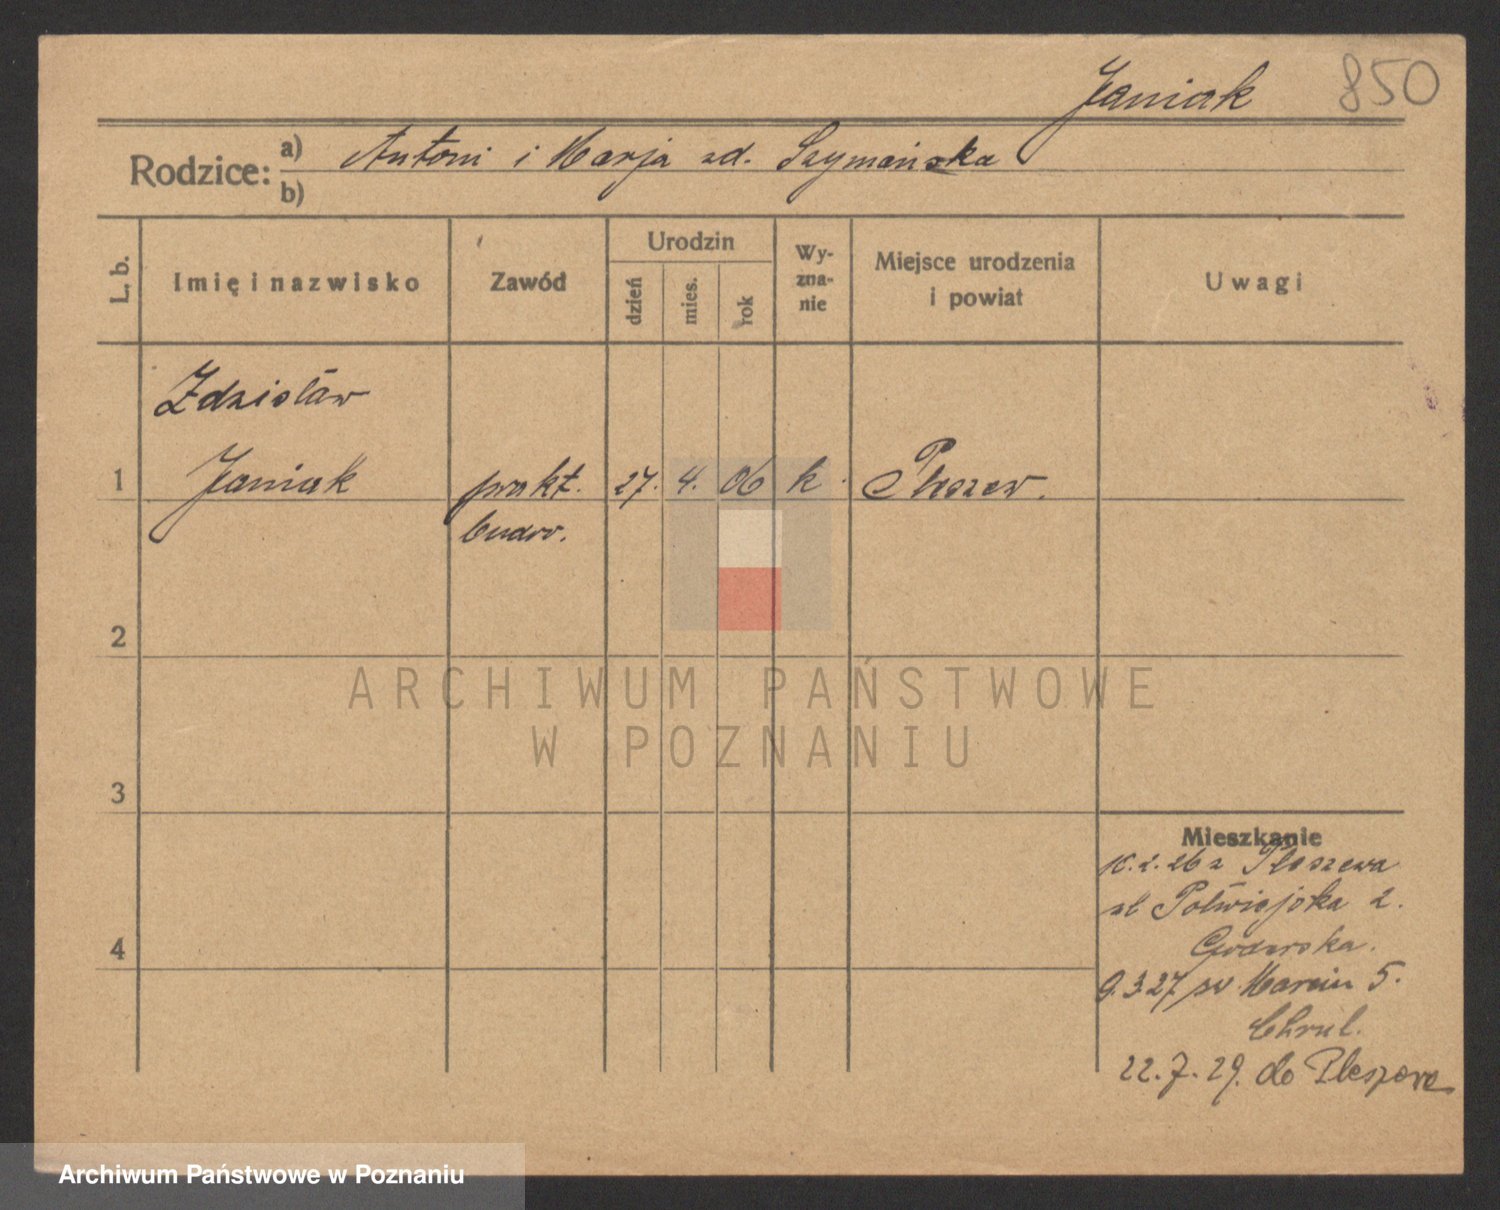 Janiak 850
Rodzice: a) Antoni i Marja zd. Szymańska
b)
L. b. Imię i nazwisko Zawód Urodzin dzień mies. rok Wy-zna-nie Miejsce urodzenia i powiat Uwagi
Zdzisław
1 Janiak prakt. 27. 4. 06 k. Pleszew.
budow.
2
ARCHIWUM PAŃSTWOWE
W POZNANIU
3
Mieszkanie
2. 26 z Pleszewa
Półwiejska 2.
4
9.3.27 św Marcin 5.
22.7.29. do Pleszewa
Archiwum Państwowe w Poznaniu